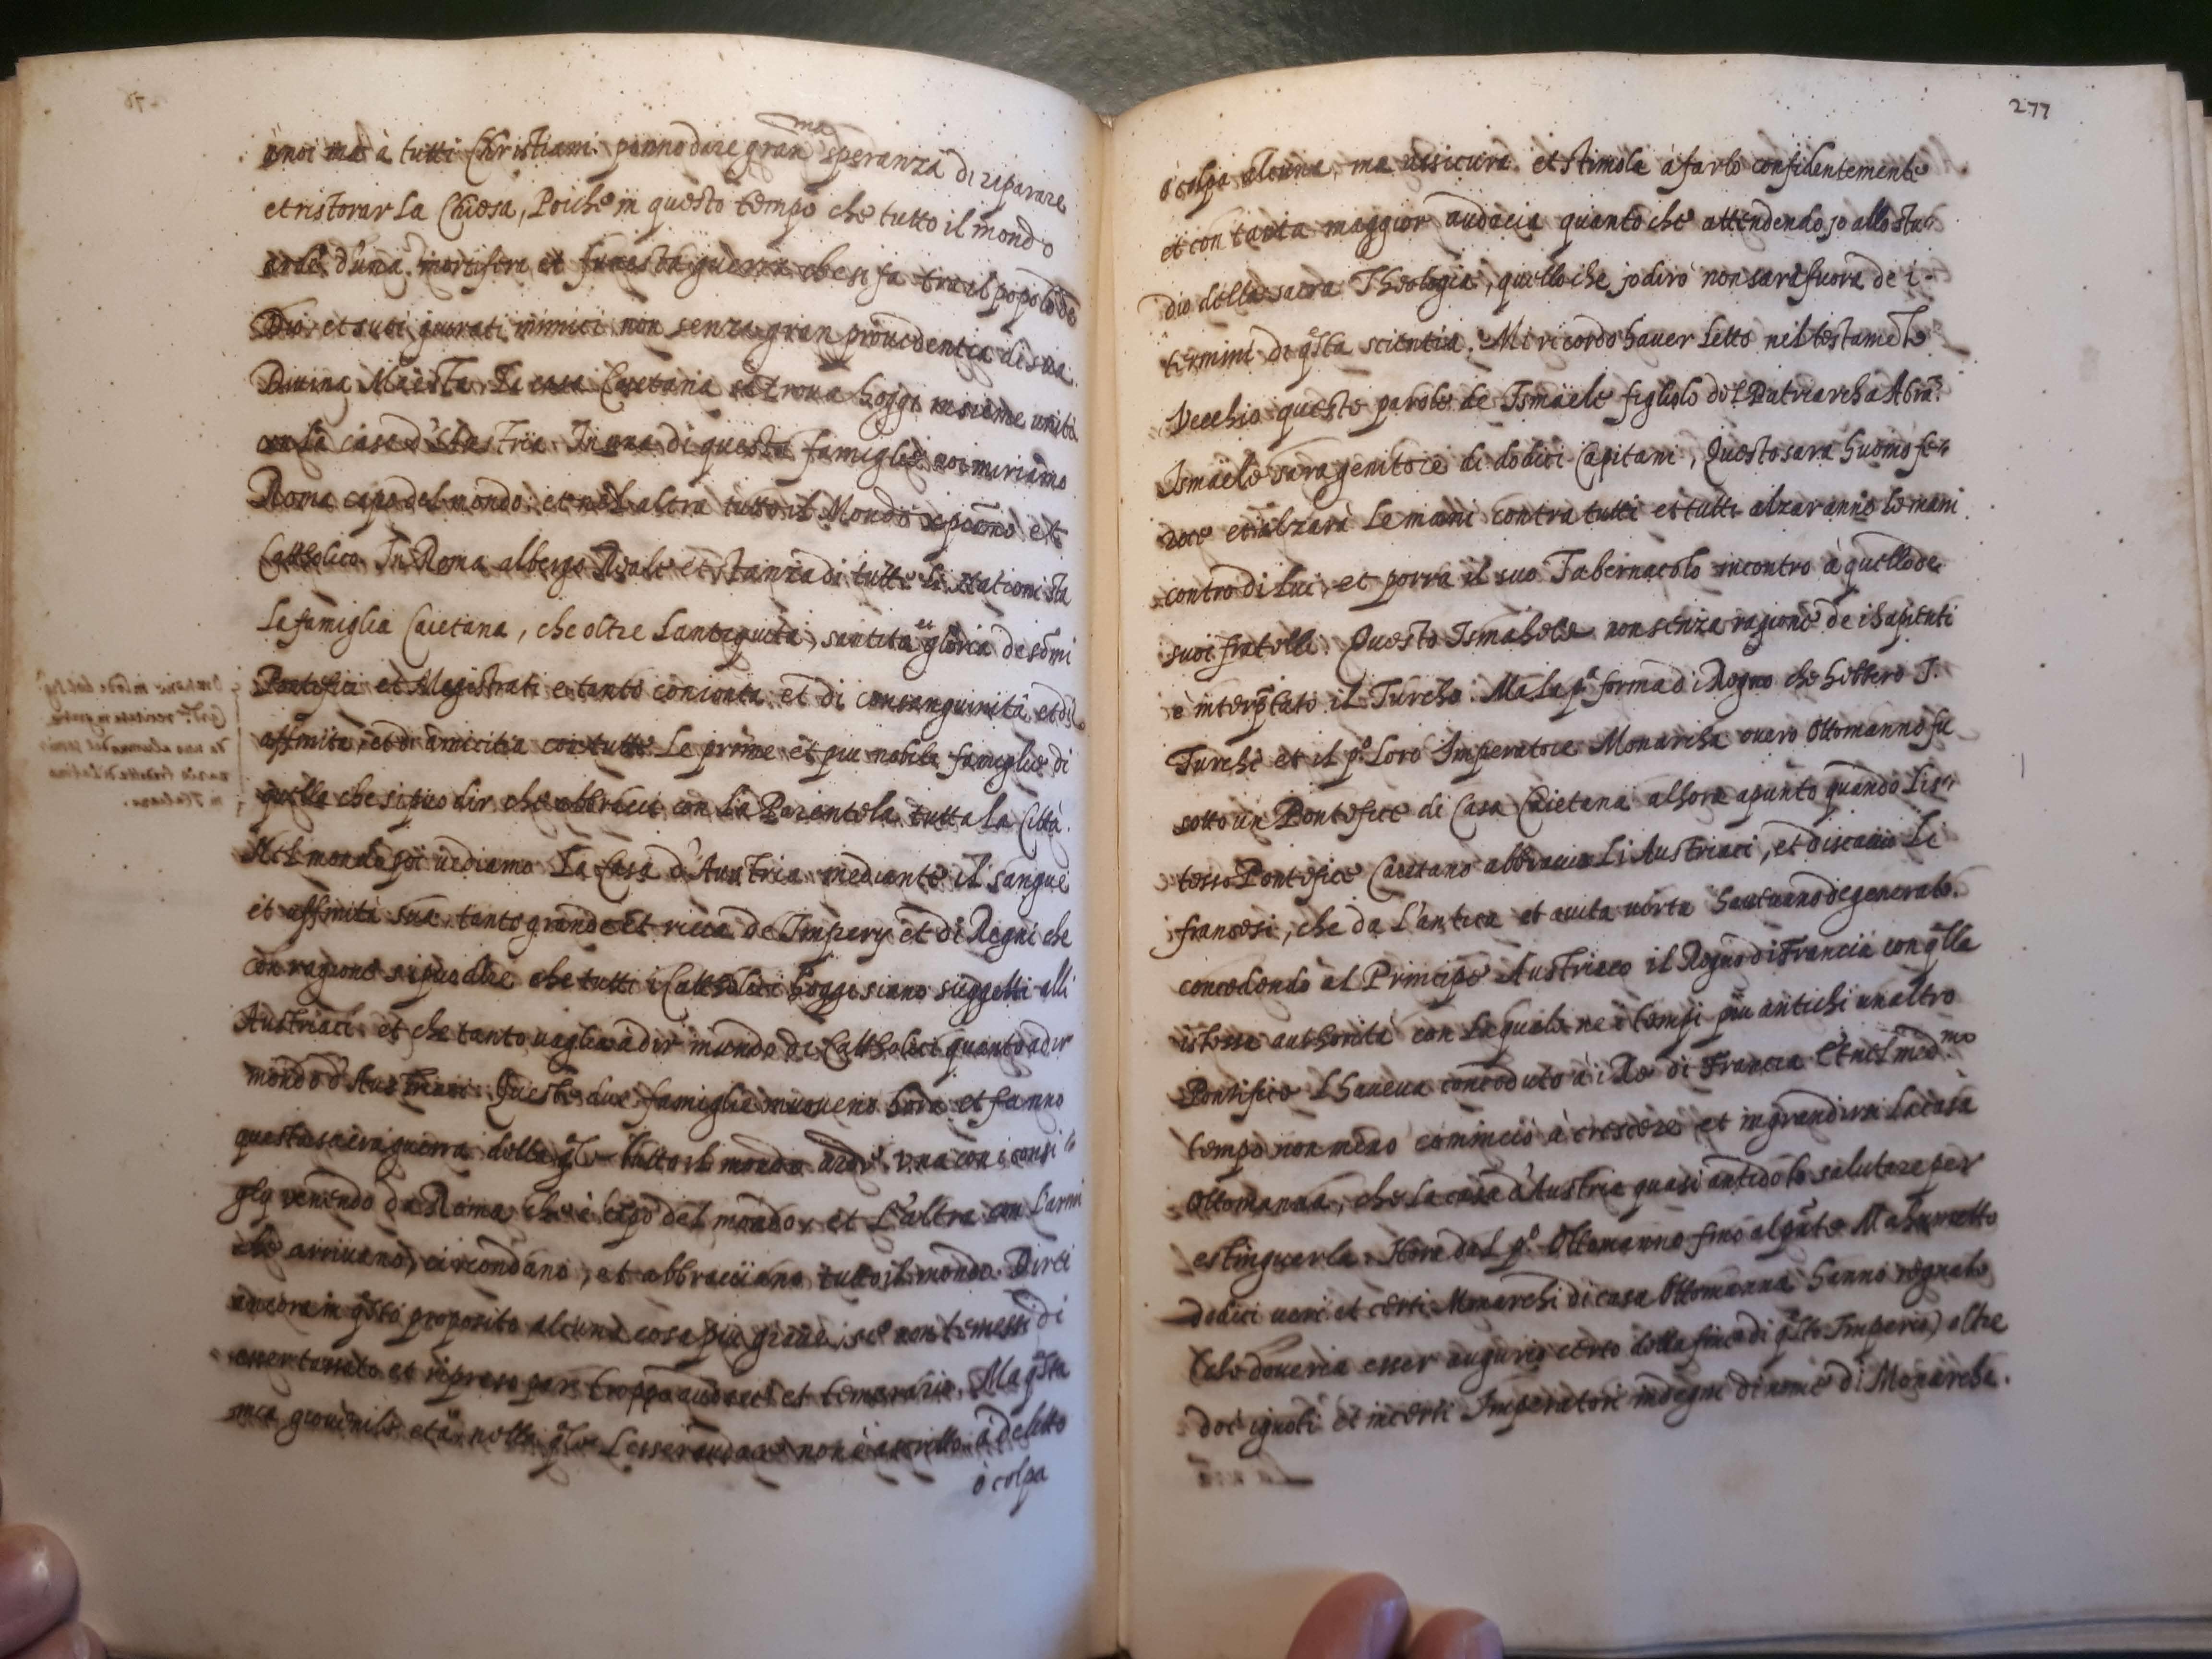 à noi ma à tutti Christiani ponno dare gran.ma speranza di riparare
et ristorar la Chiesa, Poiche in questo tempo che tutto il mondo
arde d'una mortifera et funesta guerra che si fa tra il popolo de
Dio et suoi giurati inimici non senza gran providentia di sua
Divina Maestà la casa Caietana si trova hoggi insieme unita
con la casa d'Austria. In una di queste famiglie noi miriamo
Roma capo del mondo: et nel altra tutto il Mondo xpiano et
Catholico In Roma albergo Reale et stanza di tutte le Nationi sta
la famiglia Caietana, che oltre l'antiquità, santità et gloria de sõmi
Pontefici et Magistrati e tanto conionta et di consanguinità et di
affinità, et di amicitia con tutte le prime et piu nobile famiglie di
quella che si puo dir che abbracci con la Parentela tutta la Città.
Nel mondo poi vediamo la Casa d'Austria mediante il sangue
et affinità sua tanto grande et ricca de Imperij et di Regni che
con ragione si puo dire che tutti i Catholici hoggi siano suggetti alli
Austriaci et che tanto vaglia à dir mundo de Catholici quanto à dir
mondo d'Austriaci. Queste due famiglie muoveno hora et fanno
questa sacra guerra della q̃le tutto il mondo arde, una con i consi
glij venendo da Roma che è capo del mondo, et l'altra con l'armi
che arrivano, circondano, et abbracciano tutto il mondo. Direi
ancora in q̃sto proposito alcuna cosa piu grave, se non temessi di
esser tassato et ripreso per troppo audace et temerario, Ma q̃sta
mia giovenile età, nella q̃le l'esser audace non è ascritto à delitto
ò colpa
277
ò colpa alcuna, ma assicura et stimola à farlo confidentemente
et con tanta maggior audacia quanto che attendendo jo allo stu
dio della sacra Theologia, quello che jo dirò non sarà fuora de i
termini di q̃sta scientia. Mi ricordo haver letto nel testamẽto
Vecchio queste parole de Ismäele figliolo del Patriarcha Abra:
Ismäele sara genitore di dodici Capitani, Questo sara huomo fe
roce et alzarà le mani contra tutti et tutti alzaranno le mani
contro di lui, et porrà il suo Tabernacolo incontro à quello de
suoi fratelli. Questo Ismahele non senza ragione de i Sapienti
è interp̃tato il Turcho. Ma la pª forma di Regno che hebbero J.
Turchi et il pº loro Imperatore Monarcha overo Ottomanno fu
sotto un Pontefice di Casa Caietana alhora apunto quando l'is
tesso Pontefice Caietano abbraccio li Austriaci, et discaccio le
francesi, che da l'antica et avita virtu havevano degenerato.
concedendo al Principe Austriaco il Regno di Francia con q̃lla
istessa authorità con la quale ne i tempi piu antichi un altro
Pontifice l'haveva conceduto à i Re di Francia Et nel med.mo
tempo non meno cominciò à crescere et ingrandirsi la casa
Ottomanna, che la casa d'Austria quasi antidoto salutare per
estinguerla. Hora dal pº Ottomanno fino al p̃nte Mahumetto
dodici veri et certi Monarchi di casa Ottomanna hanno regnato
(che doveria esser augurio certo della fine di q̃sto Imperio) oltre
doi ignoti et incerti Imperatori indegni di nome di Monarcha.